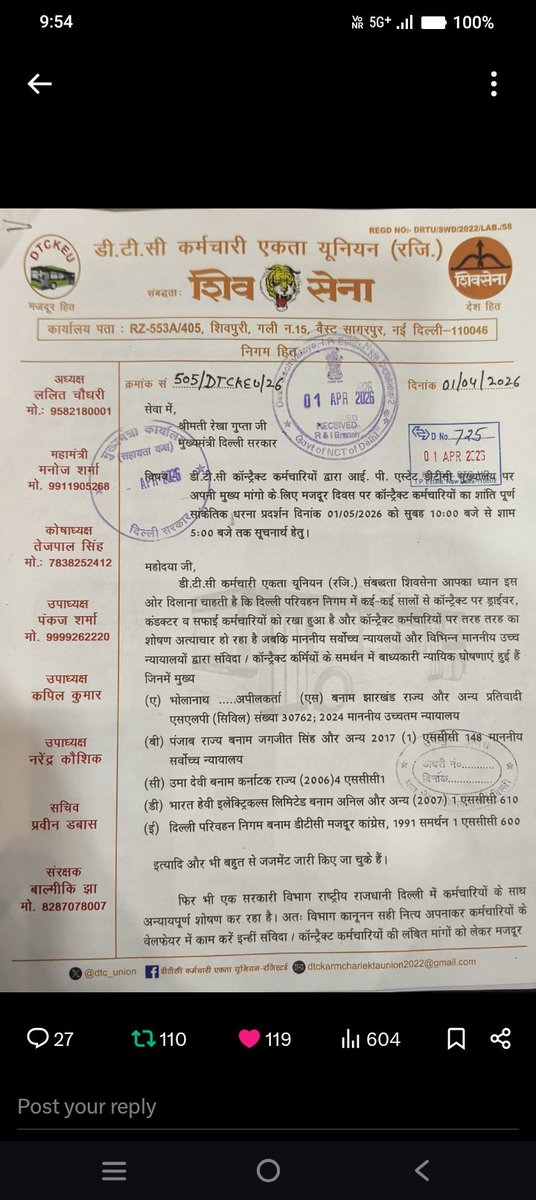 9:54
Vo NR 5G+ 100%
REGD NO:- DRTU/SWD/2022/LAB./58
DTCKEU
डी.टी.सी कर्मचारी एकता यूनियन (रजि.)
मजदूर हित
संबद्धताः शिव सेना
शिवसेना
देश हित
कार्यालय पता : RZ-553A/405, शिवपुरी, गली न.15, वैस्ट सागरपुर, नई दिल्ली-110046
निगम हित
अध्यक्ष
ललित चौधरी
मो.: 9582180001
महामंत्री
मनोज शर्मा
मो. 9911905268
कोषाध्यक्ष
तेजपाल सिंह
मो.: 7838252412
उपाध्यक्ष
पंकज शर्मा
मो. 9999262220
उपाध्यक्ष
कपिल कुमार
उपाध्यक्ष
नरेंद्र कौशिक
सचिव
प्रवीन डबास
संरक्षक
बाल्मीकि झा
मो. 8287078007
क्रमांक सं 505/DTCKEU/26
दिनांक 01/04/2026
सेवा में,
श्रीमती रेखा गुप्ता जी
मुख्यमंत्री दिल्ली सरकार
01 APR 2026
RECEIVED
R & I Branch
Govt of NCT of Delhi
मुख्यमंत्री कार्यालय
(सहायता कक्ष)
APR 2026
दिल्ली सरकार
D No. 725
01 APR 2026
विषयः डी.टी.सी कॉन्ट्रैक्ट कर्मचारियों द्वारा आई. पी. एस्टेट डीटीसी मुख्यालय पर
अपनी मुख्य मांगो के लिए मजदूर दिवस पर कॉन्ट्रैक्ट कर्मचारियों का शांति पूर्ण
सांकेतिक धरना प्रदर्शन दिनांक 01/05/2026 को सुबह 10:00 बजे से शाम
5:00 बजे तक सूचनार्थ हेतु।
महोदया जी,
डी.टी.सी कर्मचारी एकता यूनियन (रजि.) संबद्धता शिवसेना आपका ध्यान इस
ओर दिलाना चाहती है कि दिल्ली परिवहन निगम में कई-कई सालों से कॉन्ट्रैक्ट पर ड्राईवर,
कंडक्टर व सफाई कर्मचारियों को रखा हुआ है और कॉन्ट्रैक्ट कर्मचारियों पर तरह तरह का
शोषण अत्याचार हो रहा है जबकि माननीय सर्वोच्च न्यायलयों और विभिन्न माननीय उच्च
न्यायालयों द्वारा संविदा / कॉन्ट्रैक्ट कर्मियों के समर्थन में बाध्यकारी न्यायिक घोषणाएं हुई हैं
जिनमें मुख्य
(ए) भोलानाथ .....अपीलकर्ता (एस) बनाम झारखंड राज्य और अन्य प्रतिवादी
एसएलपी (सिविल) संख्या 30762; 2024 माननीय उच्चतम न्यायालय
(बी) पंजाब राज्य बनाम जगजीत सिंह और अन्य 2017 (1) एससीसी 148 माननीय
सर्वोच्च न्यायालय
डायरी नं०............
दिनांक............
(सी) उमा देवी बनाम कर्नाटक राज्य (2006)4 एससीसी1
(डी) भारत हेवी इलेक्ट्रिकल्स लिमिटेड बनाम अनिल और अन्य (2007) 1 एससीसी 610
(ई) दिल्ली परिवहन निगम बनाम डीटीसी मजदूर कांग्रेस, 1991 समर्थन 1 एससीसी 600
इत्यादि और भी बहुत से जजमेंट जारी किए जा चुके हैं।
फिर भी एक सरकारी विभाग राष्ट्रीय राजधानी दिल्ली में कर्मचारियों के साथ
अन्यायपूर्ण शोषण कर रहा है। अतः विभाग कानूनन सही नित्य अपनाकर कर्मचारियों के
वेलफेयर में काम करें इन्हीं संविदा / कॉन्ट्रैक्ट कर्मचारियों की लंबित मांगों को लेकर मजदूर
@dtc_union डीटीसी कर्मचारी एकता यूनियन-रजिस्टर्ड dtckarmchariektaunion2022@gmail.com
27 110 119 604
Post your reply